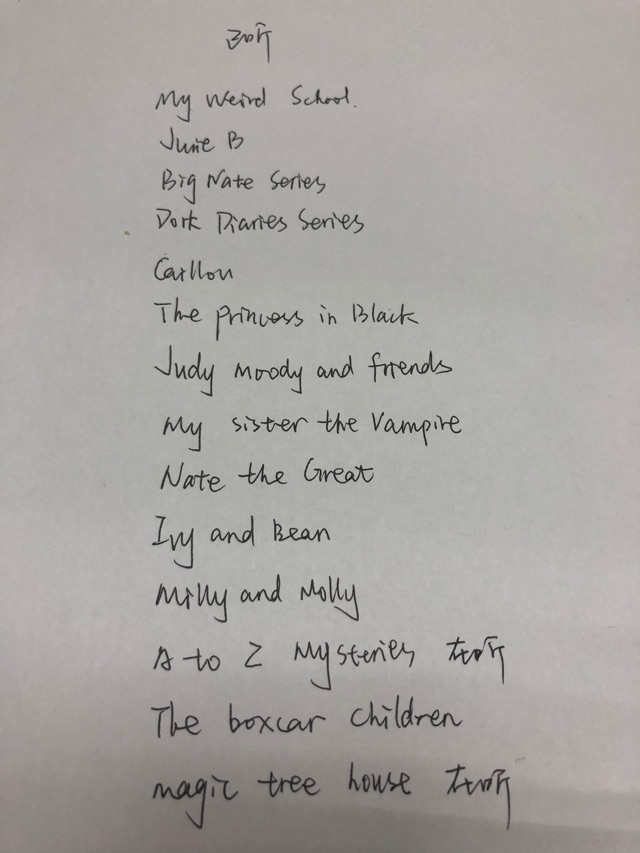 已听
My Weird School.
Junie B
Big Nate Series
Dork Diaries Series
Caillou
The princess in Black
Judy moody and friends
My sister the Vampire
Nate the Great
Ivy and Bean
Milly and Molly
A to Z Mysteries 在听
The boxcar children
magic tree house 在听